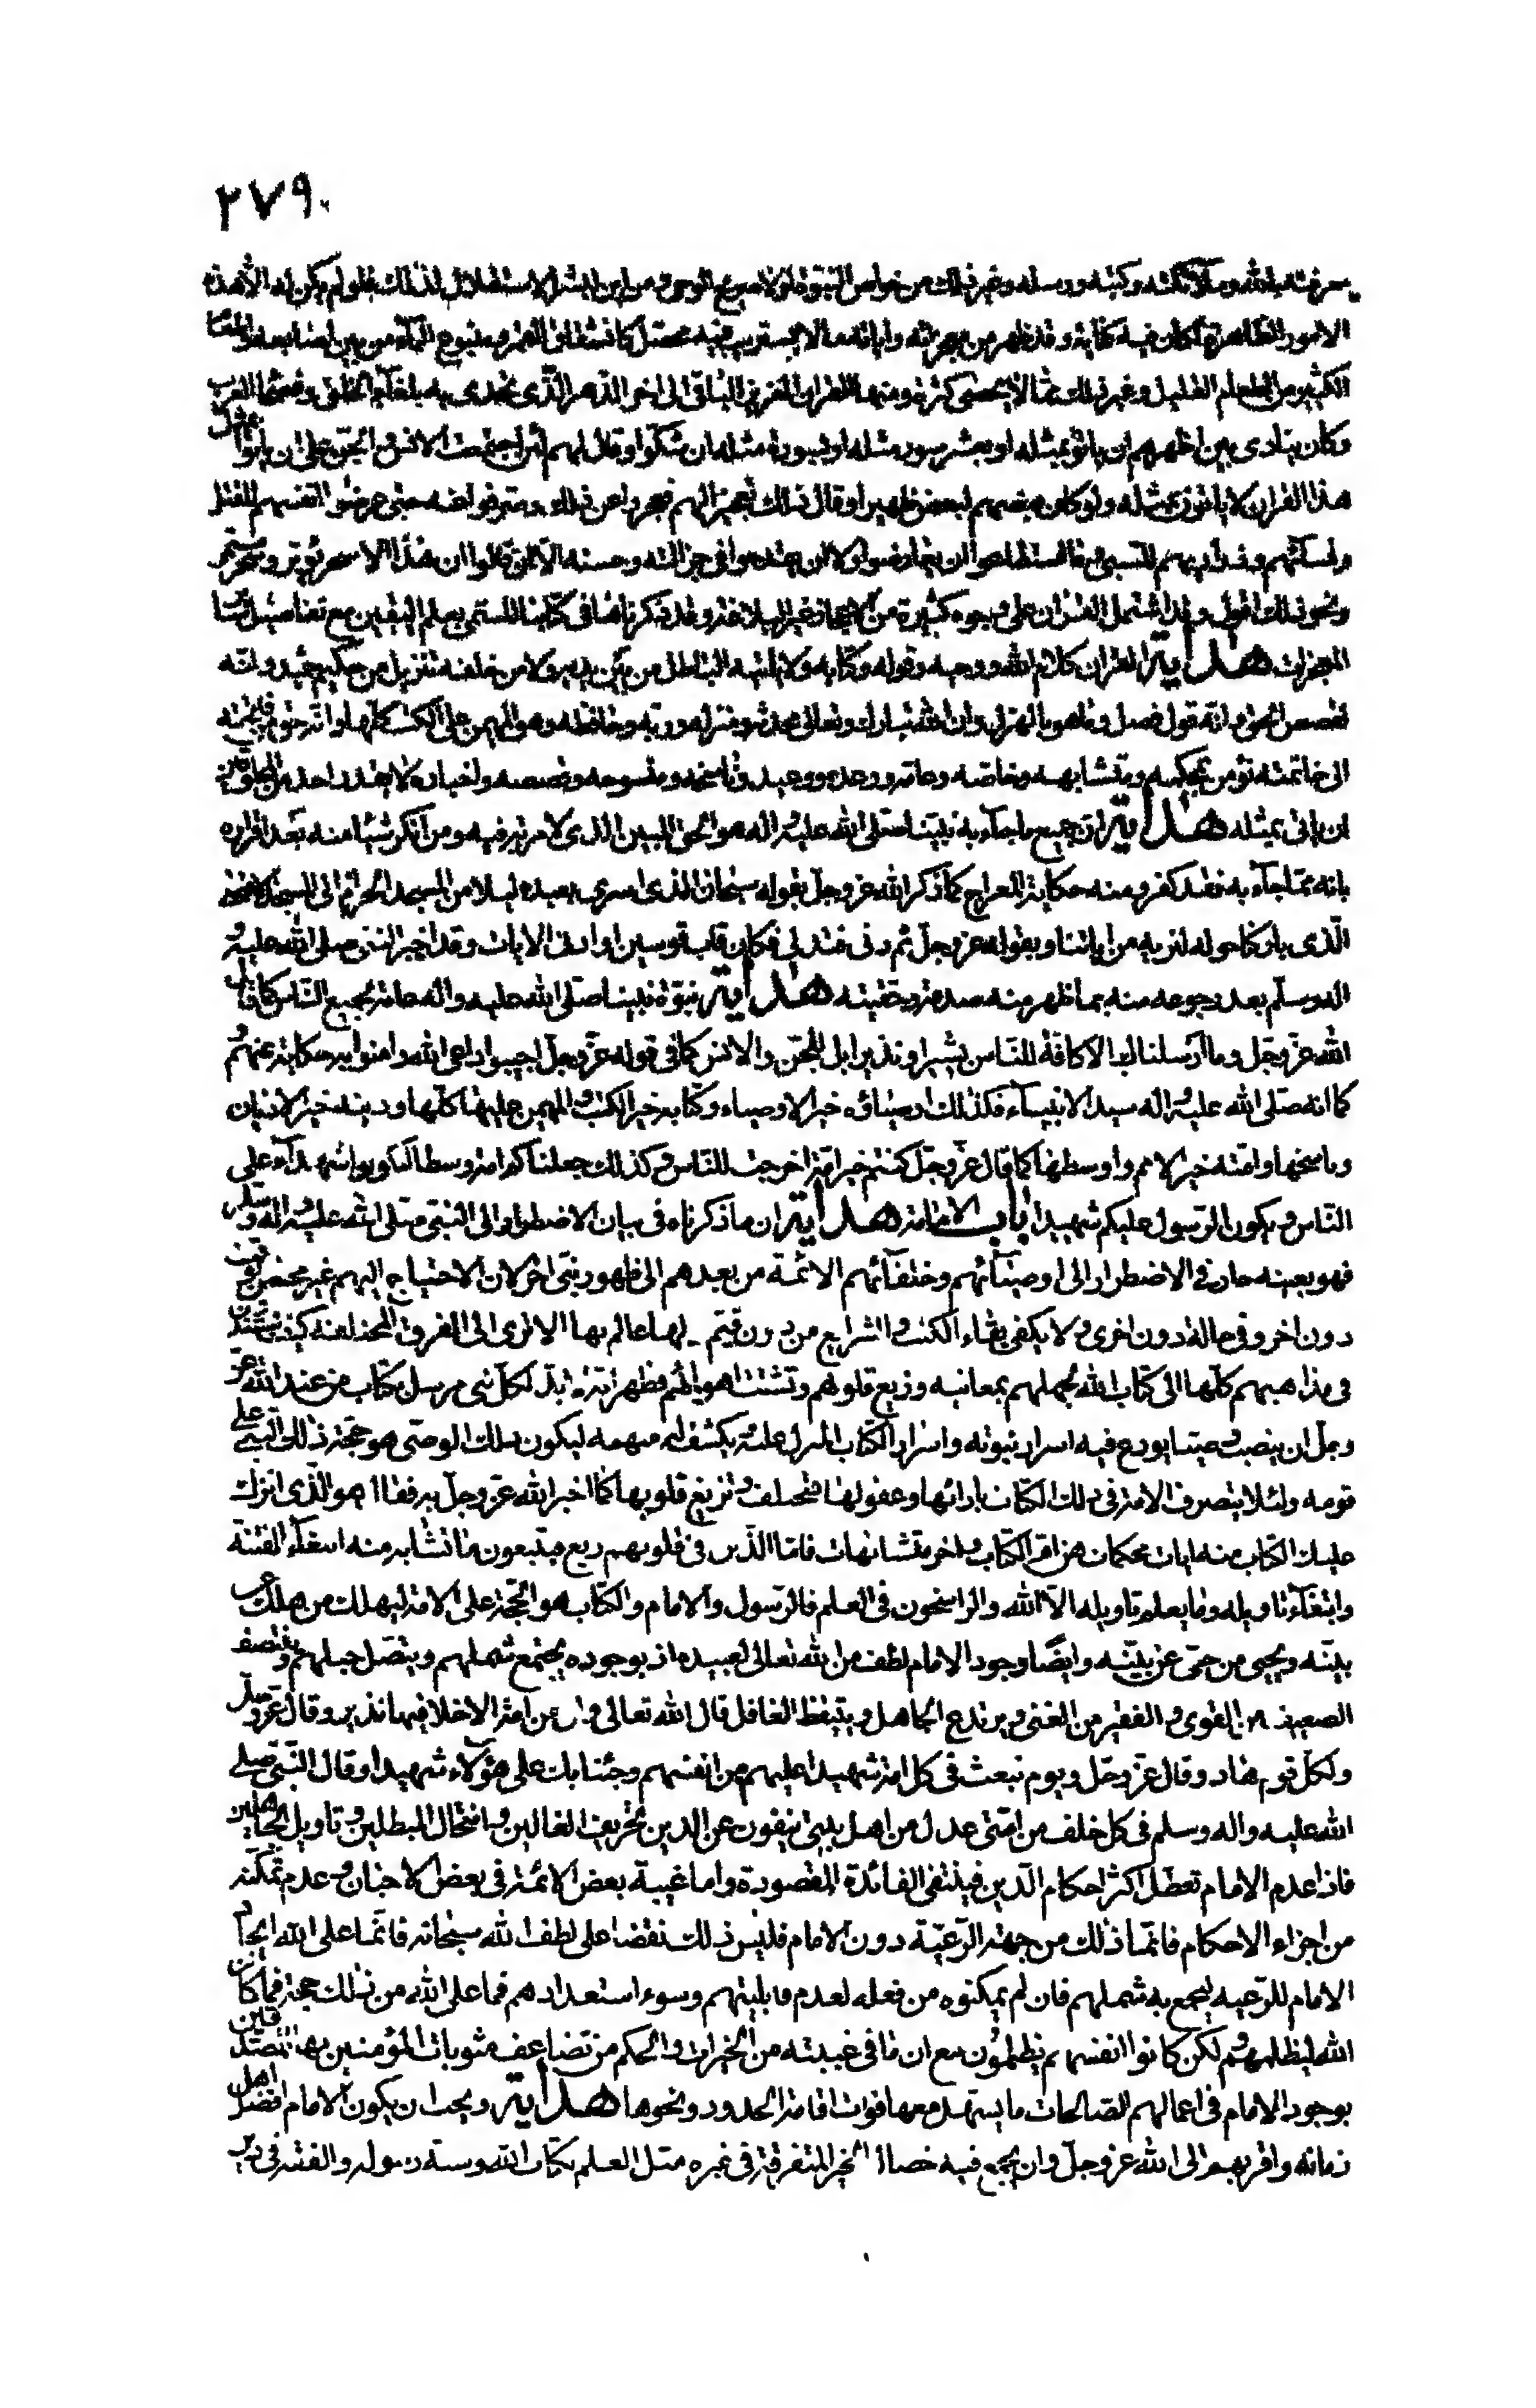 ٢٧٩
معرفته بالله وملائكته وكتبه ورسله وغير ذلك من خواص النبوة ومن اين للبشر الاستقلال بذلك فلو لم يكن له الا هذه
الامور الظاهرة لكان فيه كفاية وقد ظهر من معجزاته واياته ما لا يستريب فيه محصل كانشقاق القمر ونبوع الماء من بين اصابعه واطعام
الكثير من الطعام القليل وغير ذلك مما لا يحصى كثرة ومنها القران العزيز الباقى الى اخر الدهر الذى تحدى به بلغاء الخلق وفصحاء العرب
وكان ينادى بين اظهرهم ان ياتوا بمثله او بعشر سور مثله او بسورة مثله ان شكوا وقال لهم لئن اجتمعت الانس والجن على ان ياتوا بمثل
هذا القران لا ياتون بمثله ولو كان بعضهم لبعض ظهيرا وقال ذلك تعجيزا لهم فعجزوا عن ذلك وصرفوا عنه حتى عرضوا انفسهم للقتل
ونساءهم وذراريهم للسبى وما استطاعوا ان يعارضوا ولا ان يقدحوا فى جزالته وحسنه الا ان قالوا ان هذا الا سحر يؤثر وسحر مستمر
ونحو ذلك اقول وقد اشتمل القران على وجوه كثيرة من الاعجاز غير البلاغة وقد ذكرناها فى كتابنا المسمى بعلم اليقين مع تفاصيل سائر
المعجزات هداية القران كلام الله ووحيه وقوله وكتابه ولا ياتيه الباطل من بين يديه ولا من خلفه تنزيل من حكيم حميد وانه
لقصص الحق وانه قول فصل وما هو بالهزل وان الله تبارك وتعالى محدثه ومنزله وربه وحافظه وهو المهيمن على الكتب كلها وانه حق من فاتحته
الى خاتمته نؤمن بمحكمه ومتشابهه وخاصه وعامه ووعده ووعيده وناسخه ومنسوخه وقصصه واخباره لا يقدر احد من المخلوقين
ان ياتى بمثله هداية ان جميع ما جاء به نبينا صلى الله عليه واله هو الحق المبين الذى لا مرية فيه ومن انكر شيئا منه بعد اقراره
بانه مما جاء به فقد كفر ومنه حكاية المعراج كما ذكر الله عز وجل بقوله سبحان الذى اسرى بعبده ليلا من المسجد الحرام الى المسجد الاقصى
الذى باركنا حوله لنريه من اياتنا وبقوله عز وجل ثم دنى فتدلى فكان قاب قوسين او ادنى الايات وقد اخبر النبى صلى الله عليه و
اله وسلم بعد رجوعه منه بما ظهر منه صدقه وحقيته هداية نبوة نبينا صلى الله عليه واله عامة لجميع الناس كما قال
الله عز وجل وما ارسلناك الا كافة للناس بشيرا ونذيرا بل للجن والانس كما فى قوله عز وجل اجيبوا داعى الله وامنوا به حكاية عنهم و
كما انه صلى الله عليه واله سيد الانبياء فكذلك اوصياؤه خير الاوصياء وكتابه خير الكتب والمهيمن عليها كلها ودينه خير الاديان
وناسخها وامته خير الامم واوسطها كما قال عز وجل كنتم خير امة اخرجت للناس وكذلك جعلناكم امة وسطا لتكونوا شهداء على
الناس ويكون الرسول عليكم شهيدا باب الامامة هداية ان ما ذكرناه فى بيان الاضطرار الى النبى صلى الله عليه واله وسلم
فهو بعينه جار فى الاضطرار الى اوصيائهم وخلفائهم الائمة من بعدهم الى ظهور نبى اخر لان الاحتياج اليهم غير مختص بوقت
دون اخر وفى حالة دون اخرى ولا يكفى بقاء الكتب والشرايع من دون قيم لها عالم بها الا ترى الى الفرق المختلفة كيف يستندون
فى مذاهبهم كلها الى كتاب الله لجهلهم بمعانيه وزيغ قلوبهم وتشتت اهوائهم فظهر انه لابد لكل نبى مرسل بكتاب من عند الله عز
وجل ان ينصب وصيا يودع فيه اسرار نبوته واسرار الكتاب المنزل عليه ويكشف له مبهمه ليكون ذلك الوصى هو حجة ذلك النبى على
قومه ولئلا يتصرف الامة فى ذلك الكتاب بارائها وعقولها فتختلف وتزيغ قلوبها كما اخبر الله عز وجل به فقال هو الذى انزل
عليك الكتاب منه ايات محكمات هن ام الكتاب واخر متشابهات فاما الذين فى قلوبهم زيغ فيتبعون ما تشابه منه ابتغاء الفتنة
وابتغاء تاويله وما يعلم تاويله الا الله والراسخون فى العلم فالرسول والامام والكتاب هو الحجة على الامة ليهلك من هلك عن
بينه ويحيى من حى عن بينه وايضا وجود الامام لطف من الله تعالى لعبيده اذ بوجوده يجتمع شملهم ويتصل حبلهم وينتصف
الضعيف من القوى والفقير من الغنى ويرتدع الجاهل ويتيقظ الغافل قال الله تعالى وان من امة الا خلا فيها نذير وقال عز وجل
ولكل قوم هاد وقال عز وجل ويوم نبعث فى كل امة شهيدا عليهم من انفسهم وجئنا بك على هؤلاء شهيدا وقال النبى صلى
الله عليه واله وسلم فى كل خلف من امتى عدل من اهل بيتى ينفون عن الدين تحريف الغالين وانتحال المبطلين وتاويل الجاهلين
فاذا عدم الامام تعطل اكثر احكام الدين فينتفى الفائدة المقصودة واما غيبة بعض الائمة فى بعض الاحيان وعدم تمكنه
من اجراء الاحكام فانما ذلك من جهة الرعية دون الامام فليس ذلك نقضا على لطف الله سبحانه فانما على الله ايجاد
الامام للرعيه ليجمع به شملهم فان لم يمكنوه من فعله لعدم قابليتهم وسوء استعدادهم فما على الله من ذلك حجة فما كان
الله ليظلمهم ولكن كانوا انفسهم يظلمون مع ان ما فى غيبته من الخيرات والحكم من تضاعف مثوبات المؤمنين بها المصدقين
بوجود الامام فى اعمالهم الصالحات ما يستهل معها فوات اقامة الحدود ونحوها هداية ويجب ان يكون الامام افضل اهل
زمانه واقربهم الى الله عز وجل وان يجمع فيه خصال الخير المتفرقة فى غيره مثل العلم بكتاب الله وسنة رسوله والفقه فى دين